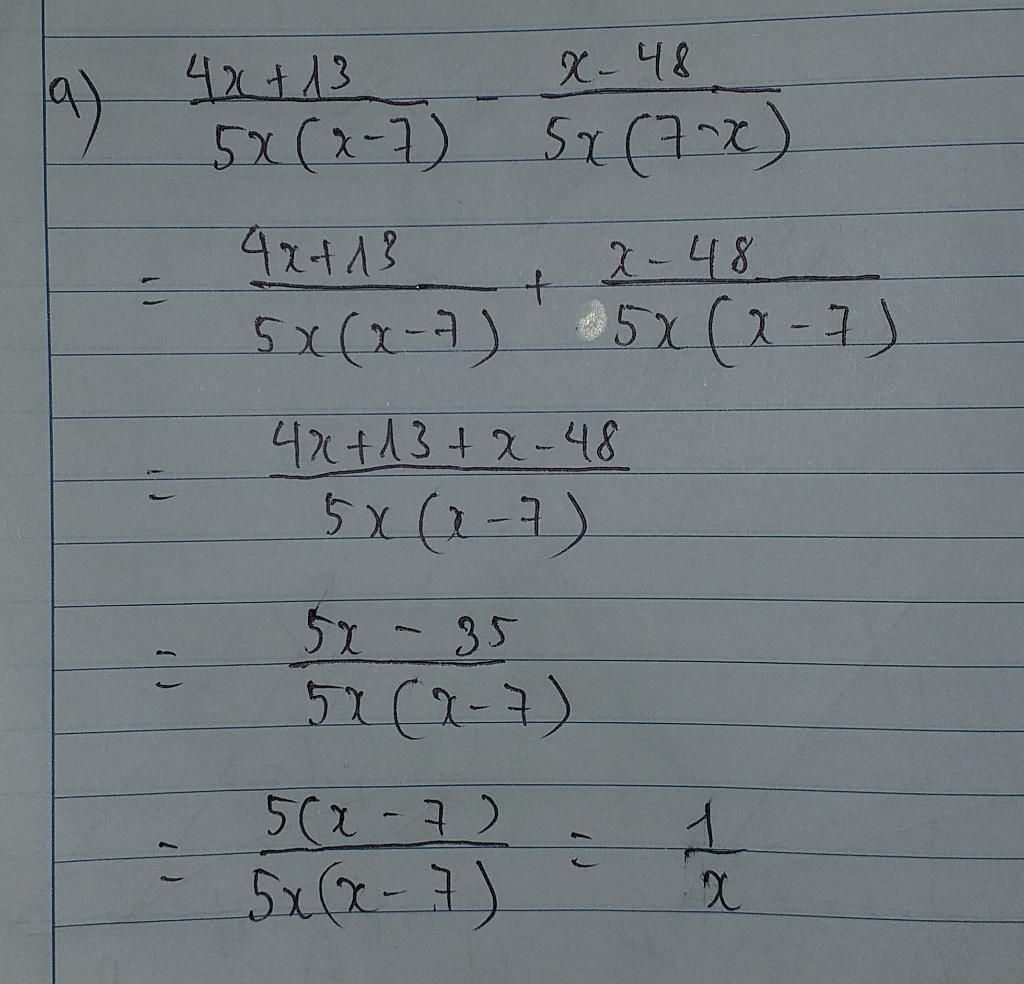 a) (4x+13)/(5x(x-7)) - (x-48)/(5x(7-x))
= (4x+13)/(5x(x-7)) + (x-48)/(5x(x-7))
= (4x+13+x-48)/(5x(x-7))
= (5x-35)/(5x(x-7))
= (5(x-7))/(5x(x-7)) = 1/x